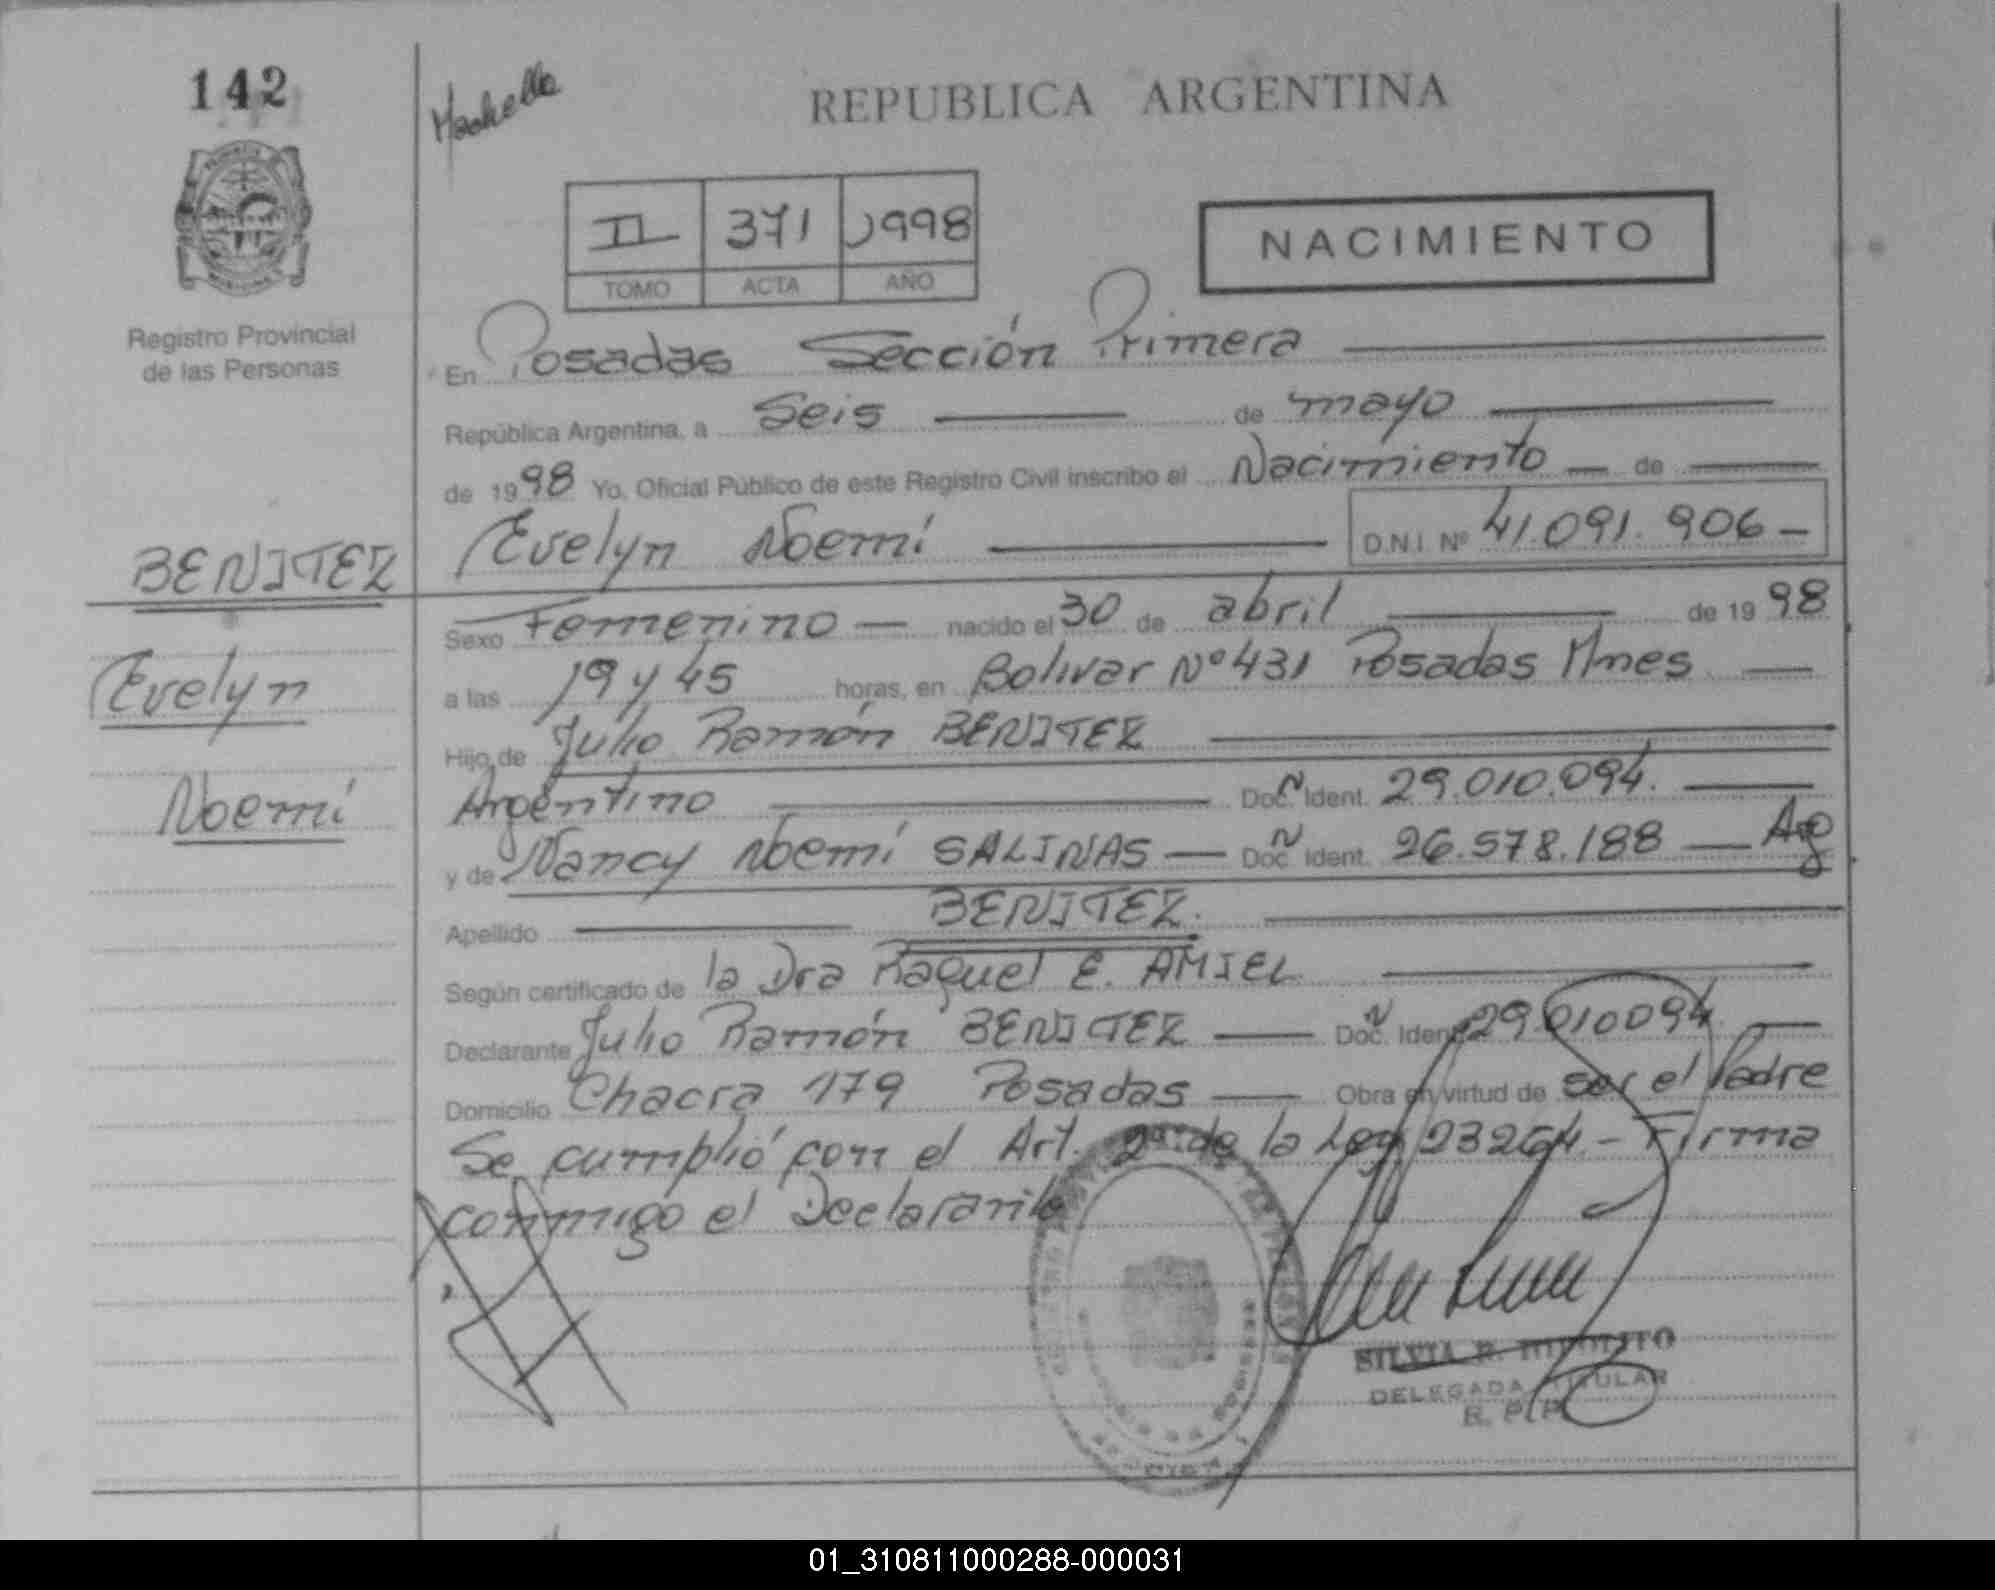 142
REPUBLICA ARGENTINA
II 371 1998
TOMO ACTA AÑO
NACIMIENTO
Registro Provincial
de las Personas
En Posadas Sección Primera
República Argentina, a Seis de mayo
de 1998 Yo, Oficial Público de este Registro Civil inscribo el Nacimiento de
BENITEZ
Evelyn Noemí D.N.I. Nº 41.091.906
Sexo Femenino nacido el 30 de abril de 1998
Evelyn
a las 19 y 45 horas, en Bolivar Nº 431 Posadas Mnes
Hijo de Julio Ramón BENITEZ
Noemí
Argentino Doc. Ident. 29.010.094.
y de Nancy Noemí SALINAS Doc. Ident. 26.578.188
Apellido BENITEZ.
Según certificado de la Dra Raquel E. AMIEL
Declarante Julio Ramón BENITEZ Doc. Ident. 29.010094.
Domicilio Chacra 179 Posadas Obra en virtud de ser el Padre
Se cumplió con el Art. 2º de la Ley 23264.- Firma
conmigo el Declarante
SILVIA R. HIPOLITO
DELEGADA TITULAR
R. P. P.
01_310811000288-000031